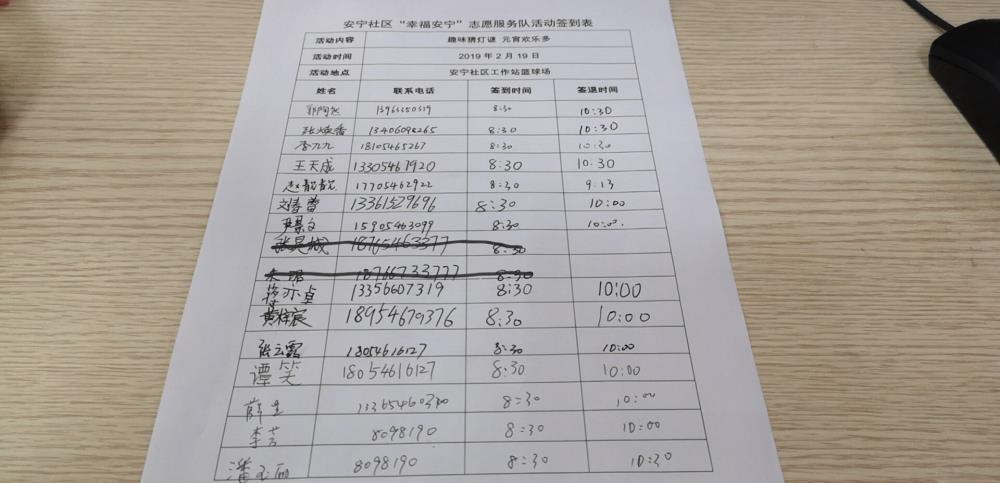 安宁社区“幸福安宁”志愿服务队活动签到表
活动内容 趣味猜灯谜 元宵欢乐多
活动时间 2019年2月19日
活动地点 安宁社区工作站篮球场
姓名 联系电话 签到时间 签退时间
8:30 10:30
张焕香 13406098265 8:30 10:30
李九九 18105465267 8:30 10:30
王天成 13305467920 8:30 10:30
赵懿懿 17705462922 8:30 9:13
刘春蕾 13361529696 8:30 10:00
尹景文 15905463099 8:30 10:00.
张昊城 18765463377 8:30
朱珺 18766733777 8:30
蒋亦卓 13356607319 8:30 10:00
黄梓宸 18954679376 8:30 10:00
张云露 18054616127 8:30 10:00
谭笑 18054616127 8:30 10:00
薛生 8:30 10:00
李芳 8098190 8:30 10:00
潘玉丽 8098190 8:30 10:30